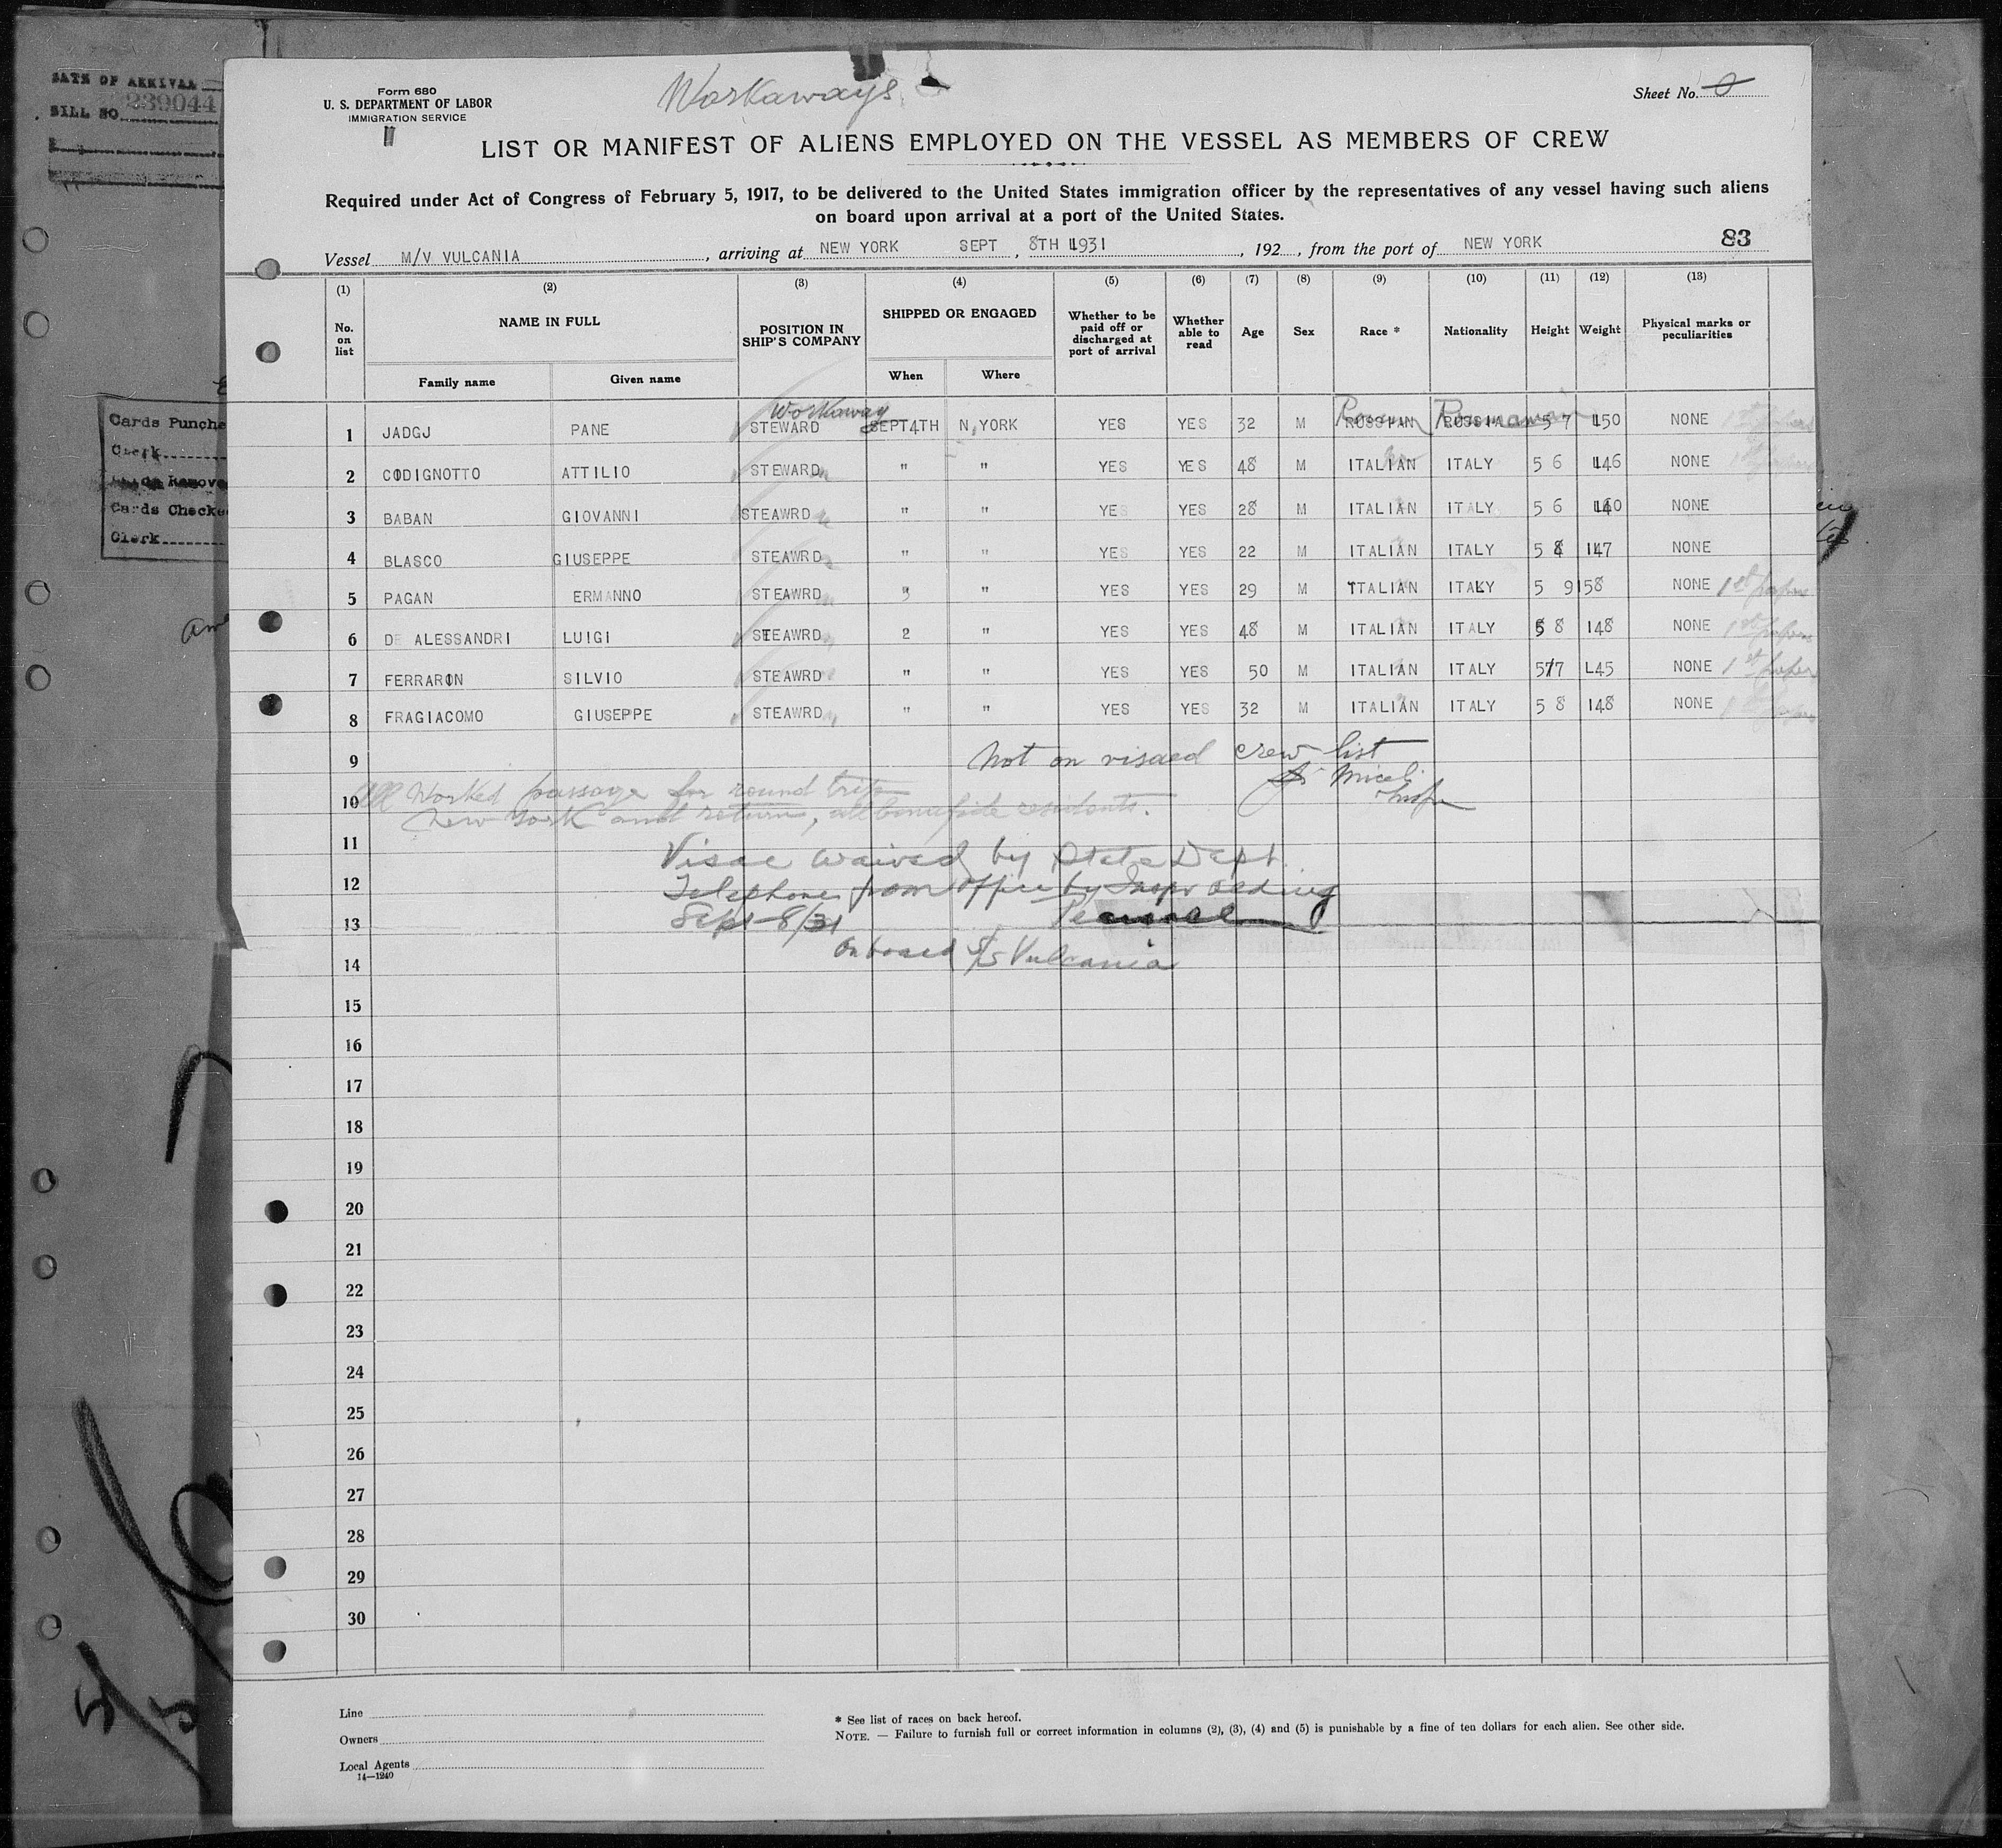 DATE OF ARRIVAL
BILL NO. 239044
Cards Punche
Clerk
Cards Checke
Clerk
Form 680
U. S. DEPARTMENT OF LABOR
IMMIGRATION SERVICE
Workaways
Sheet No.
LIST OR MANIFEST OF ALIENS EMPLOYED ON THE VESSEL AS MEMBERS OF CREW
Required under Act of Congress of February 5, 1917, to be delivered to the United States immigration officer by the representatives of any vessel having such aliens
on board upon arrival at a port of the United States.
83
Vessel M/V VULCANIA, arriving at NEW YORK SEPT, 8TH 1931, 192, from the port of NEW YORK
(1) (2) (3) (4) (5) (6) (7) (8) (9) (10) (11) (12) (13)
No. on list NAME IN FULL POSITION IN SHIP'S COMPANY SHIPPED OR ENGAGED Whether to be paid off or discharged at port of arrival Whether able to read Age Sex Race * Nationality Height Weight Physical marks or peculiarities
Family name Given name When Where
Workaway
1 JADGJ PANE STEWARD SEPT4TH N,YORK YES YES 32 M ROSSIAN Roumanian 5 7 150 NONE
2 CODIGNOTTO ATTILIO STEWARD " " YES YES 48 M ITALIAN ITALY 5 6 146 NONE
3 BABAN GIOVANNI STEAWRD " " YES YES 28 M ITALIAN ITALY 5 6 140 NONE
4 BLASCO GIUSEPPE STEAWRD " " YES YES 22 M ITALIAN ITALY 5 8 147 NONE
5 PAGAN ERMANNO STEAWRD " " YES YES 29 M ITALIAN ITALY 5 9 158 NONE 1st papers
6 DE ALESSANDRI LUIGI STEAWRD 2 " YES YES 48 M ITALIAN ITALY 5 8 148 NONE 1st papers
7 FERRARIN SILVIO STEAWRD " " YES YES 50 M ITALIAN ITALY 5 7 L45 NONE 1st paper
8 FRAGIACOMO GIUSEPPE STEAWRD " " YES YES 32 M ITALIAN ITALY 5 8 148 NONE
9 Not on visaed crew list
Miceli
Inspr
10 All Worked passage for round trip
New York and return, all bonafide residents.
11 Visae waived by State Dept.
12 Telephone from office by Inspr
13 Sept-8/31
14 On board S/S Vulcania
15
16
17
18
19
20
21
22
23
24
25
26
27
28
29
30
Line
Owners
Local Agents
14—1240
* See list of races on back hereof.
NOTE. — Failure to furnish full or correct information in columns (2), (3), (4) and (5) is punishable by a fine of ten dollars for each alien. See other side.